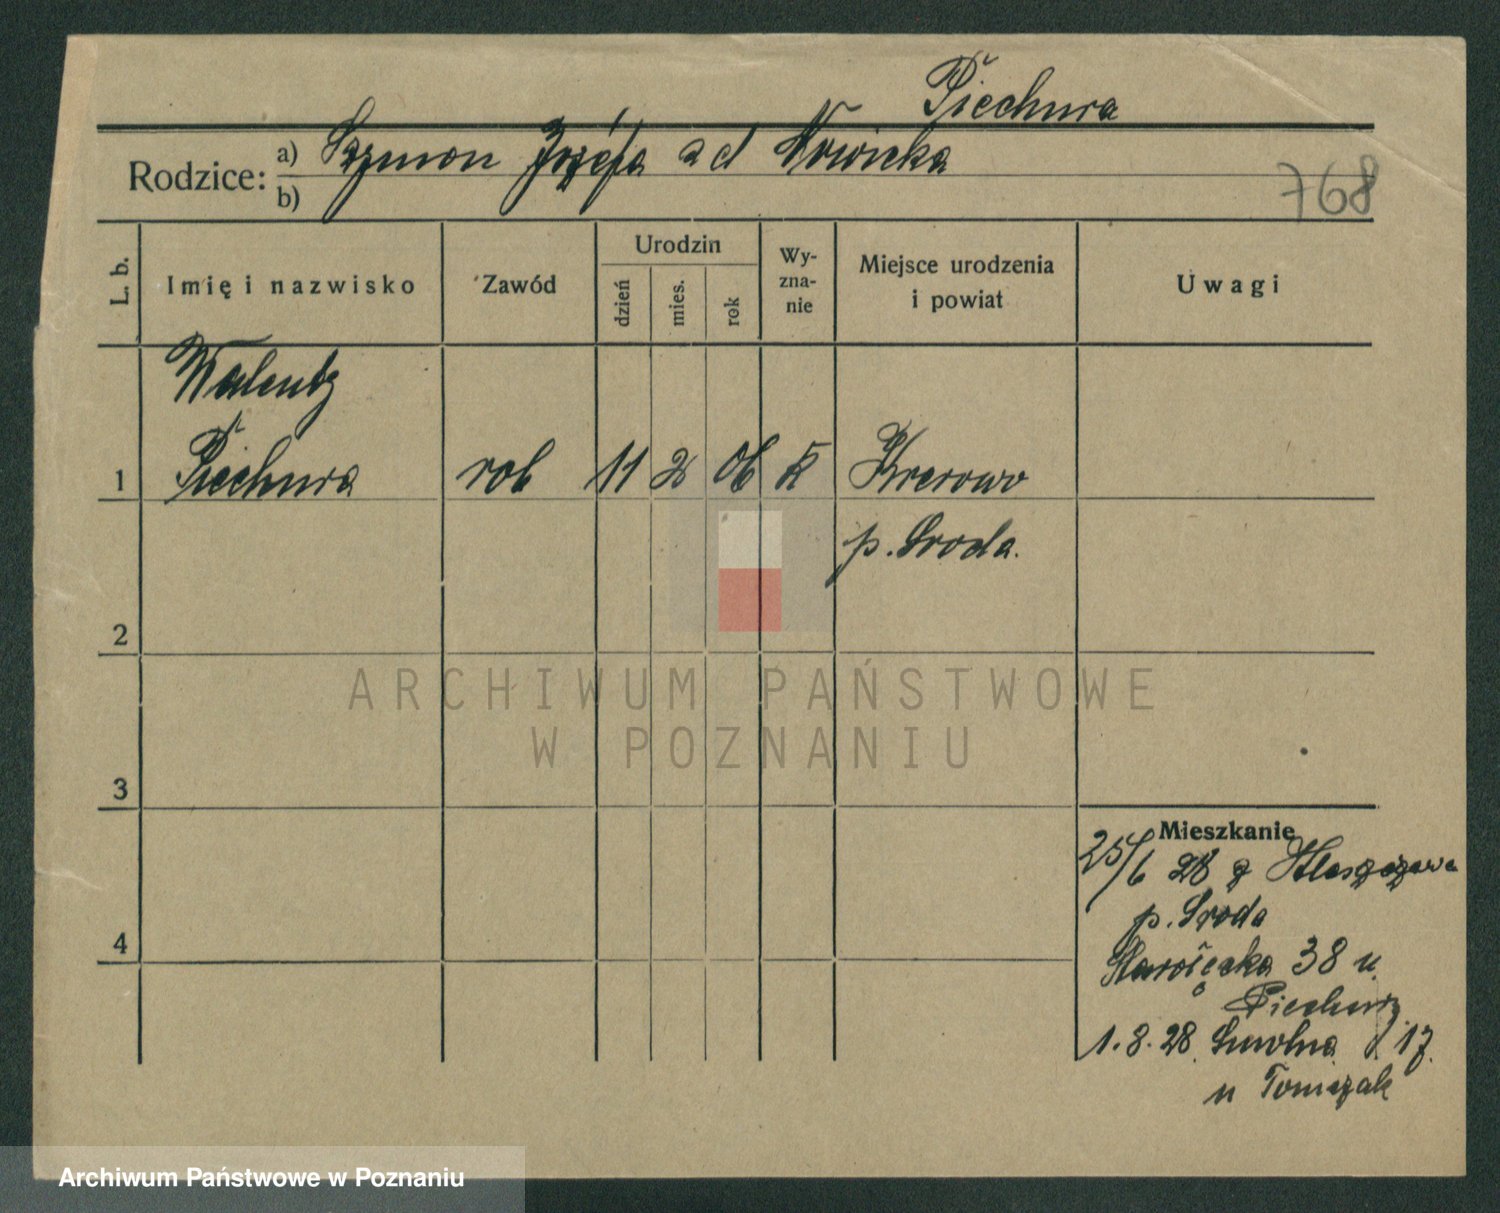 Piechura
Rodzice: a) Szymon Józefa zd Nowicka
b)
768
L. b. Imię i nazwisko Zawód Urodzin dzień mies. rok Wy-zna-nie Miejsce urodzenia i powiat Uwagi
Walenty
1 Piechura rob 11 2 06 k Krerowo
p. Sroda.
2
ARCHIWUM PAŃSTWOWE
W POZNANIU
3
Mieszkanie
25/6 28 z
p. Sroda
4
Starołęcka 38 u
Piechury
1.8.28 Smolna 17.
u Tomczak
Archiwum Państwowe w Poznaniu